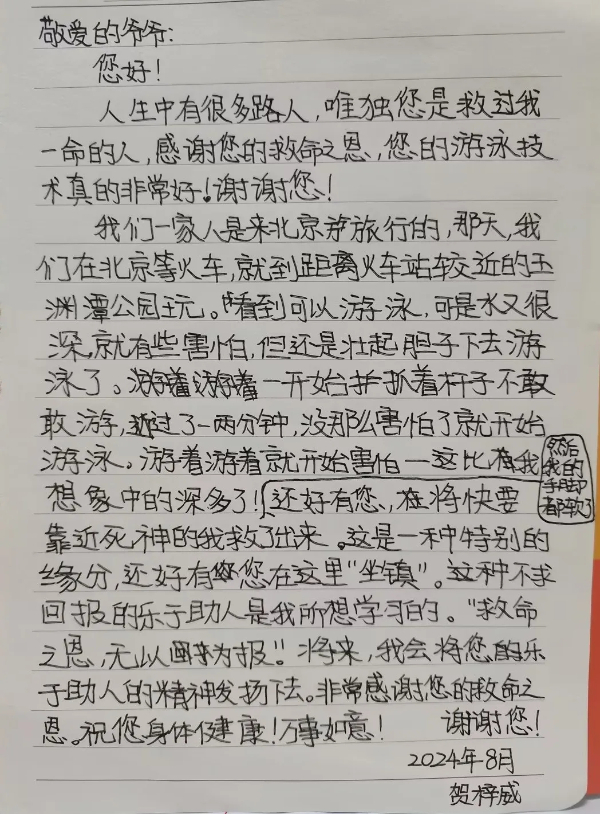 敬爱的爷爷:
您好!
人生中有很多路人,唯独您是救过我
一命的人,感谢您的救命之恩,您的游泳技
术真的非常好!谢谢您!
我们一家人是来北京旅行的,那天,我
们在北京等火车,就到距离火车站较近的玉
渊潭公园玩。看到可以游泳,可是水又很
深,就有些害怕,但还是壮起胆子下去游
泳了。一开始扒着杆子不敢
敢游,过了一两分钟,没那么害怕了就开始
游泳。游着游着就开始害怕—这比我
想象中的深多了!还好有您,在将快要
然后
我的
手脚
都软了
靠近死神的我救了出来。这是一种特别的
缘分,还好有您在这里"坐镇"。这种不求
回报的乐于助人是我所想学习的。"救命
之恩,无以为报"。将来,我会将您的乐
于助人的精神发扬下去。非常感谢您的救命之
恩。祝您身体健康!万事如意! 谢谢您!
2024年8月
贺梓威